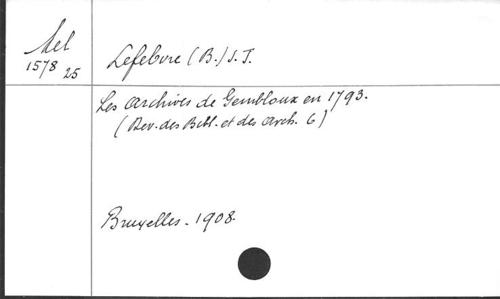 Mel
1578 25
Lefebvre (B.) S. J.
Les archives de Gembloux en 1793.
(Rev. des Bibl. et des Arch. 6)
Bruxelles - 1908.